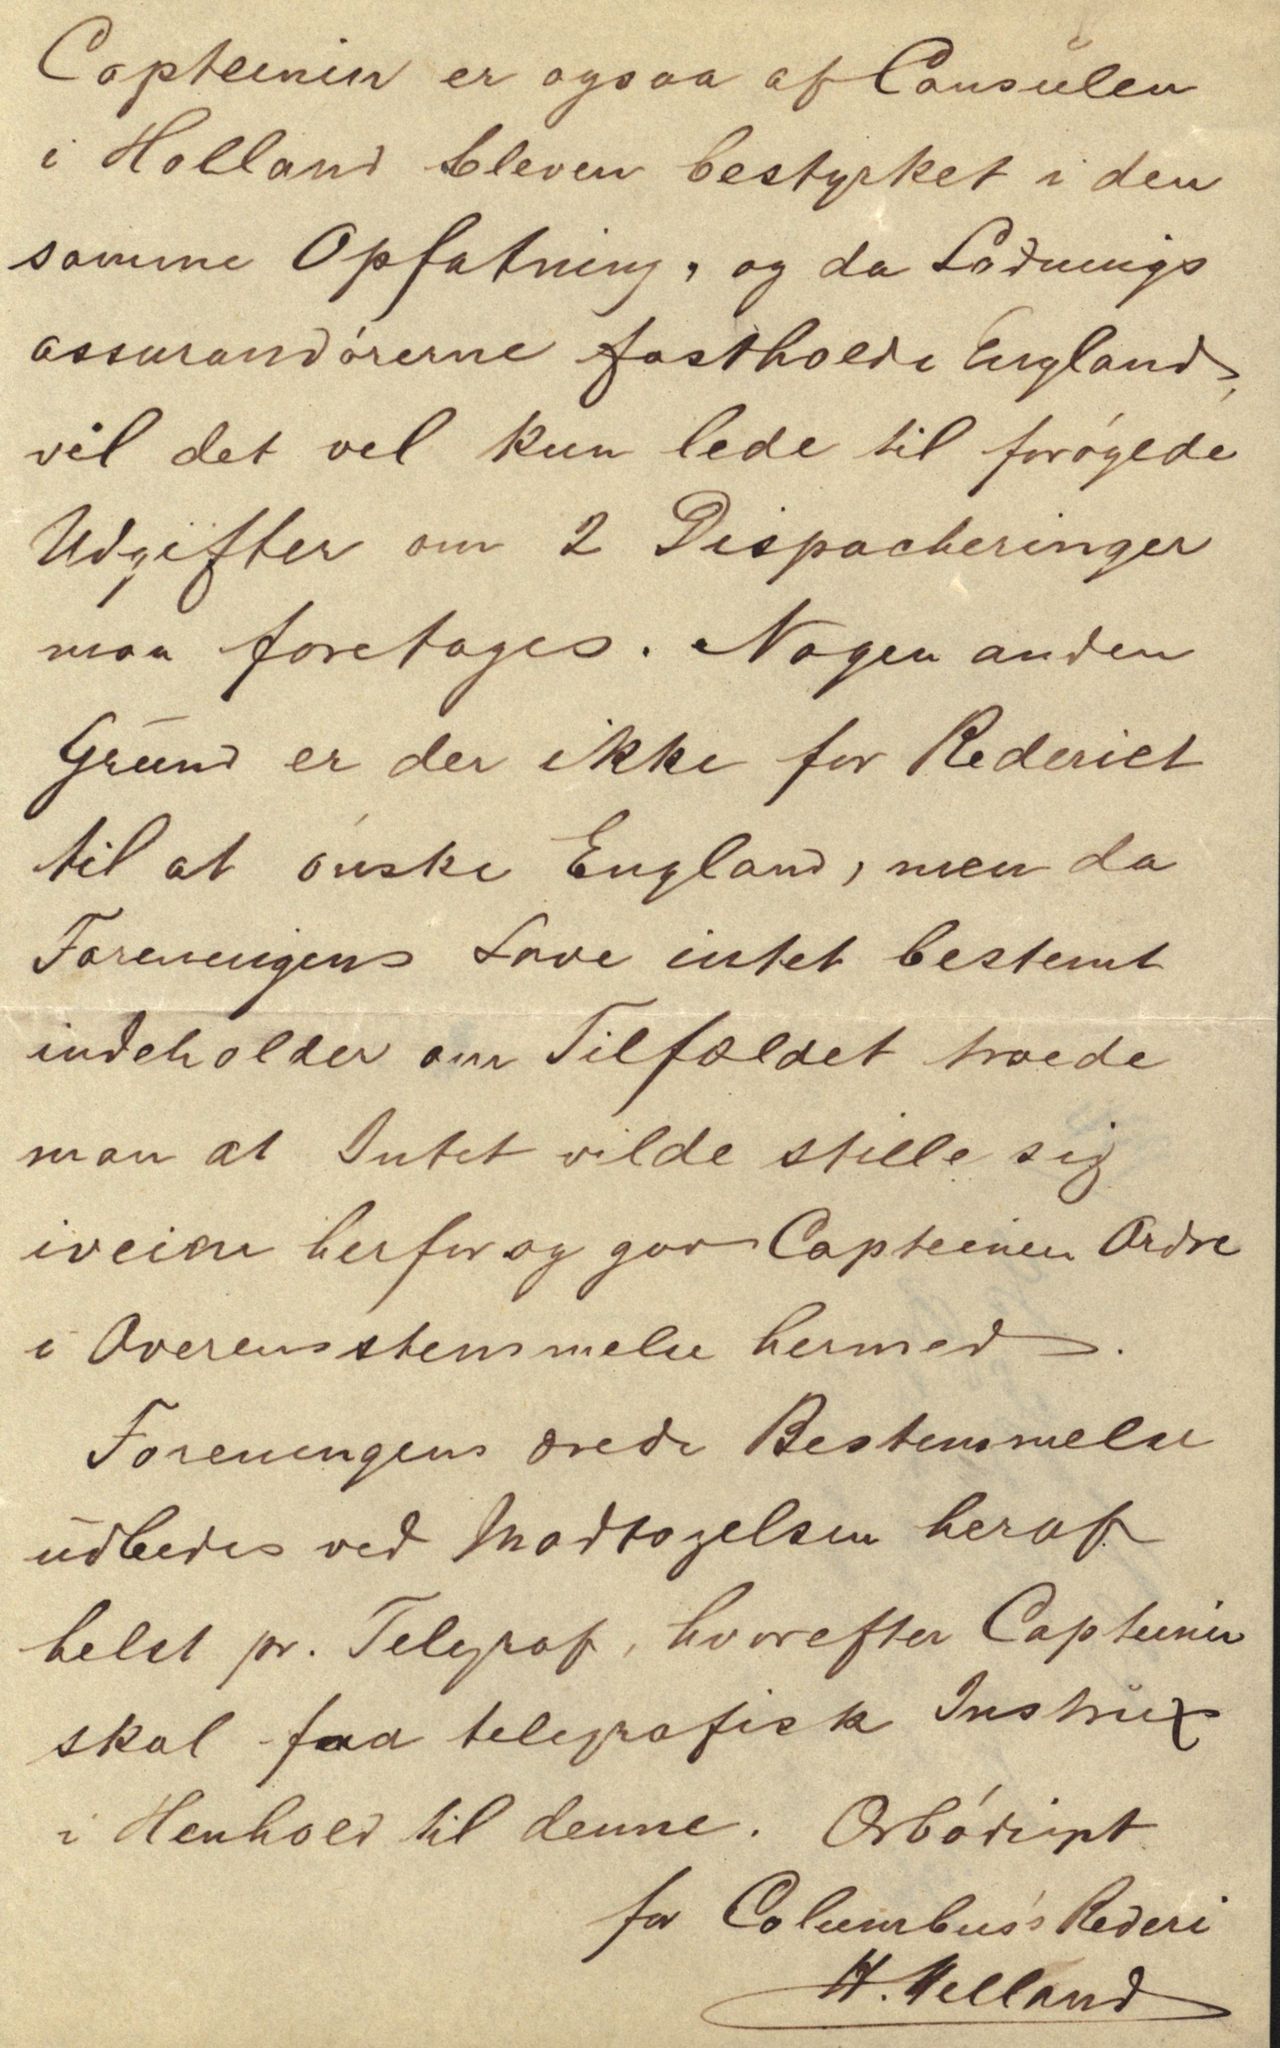 Capteinen er ogsaa af Consulen
i Holland bleven bestyrket i den
samme Opfatning, og da Ladnings
assurandörerne fastholde England,
vil det vel kun lede til forögede
Udgifter om 2 Dispacheringer
maa foretages. Nogen anden
Grund er der ikke for Rederiet
til at önske England, men da
Foreningens Love intet bestemt
indeholder om Tilfældet troede
man at Intet vilde stille sig
iveien herfor og gav Capteinen Ordre
i Overensstemmelse hermed.
Foreningens ærede Bestemmelse
udbedes ved Modtagelsen heraf
helst pr. Telegraf, hvorefter Capteinen
skal faa telegrafisk Instrux
i Henhold til denne. Ærbödigst
for Columbus's Rederi
H. Helland